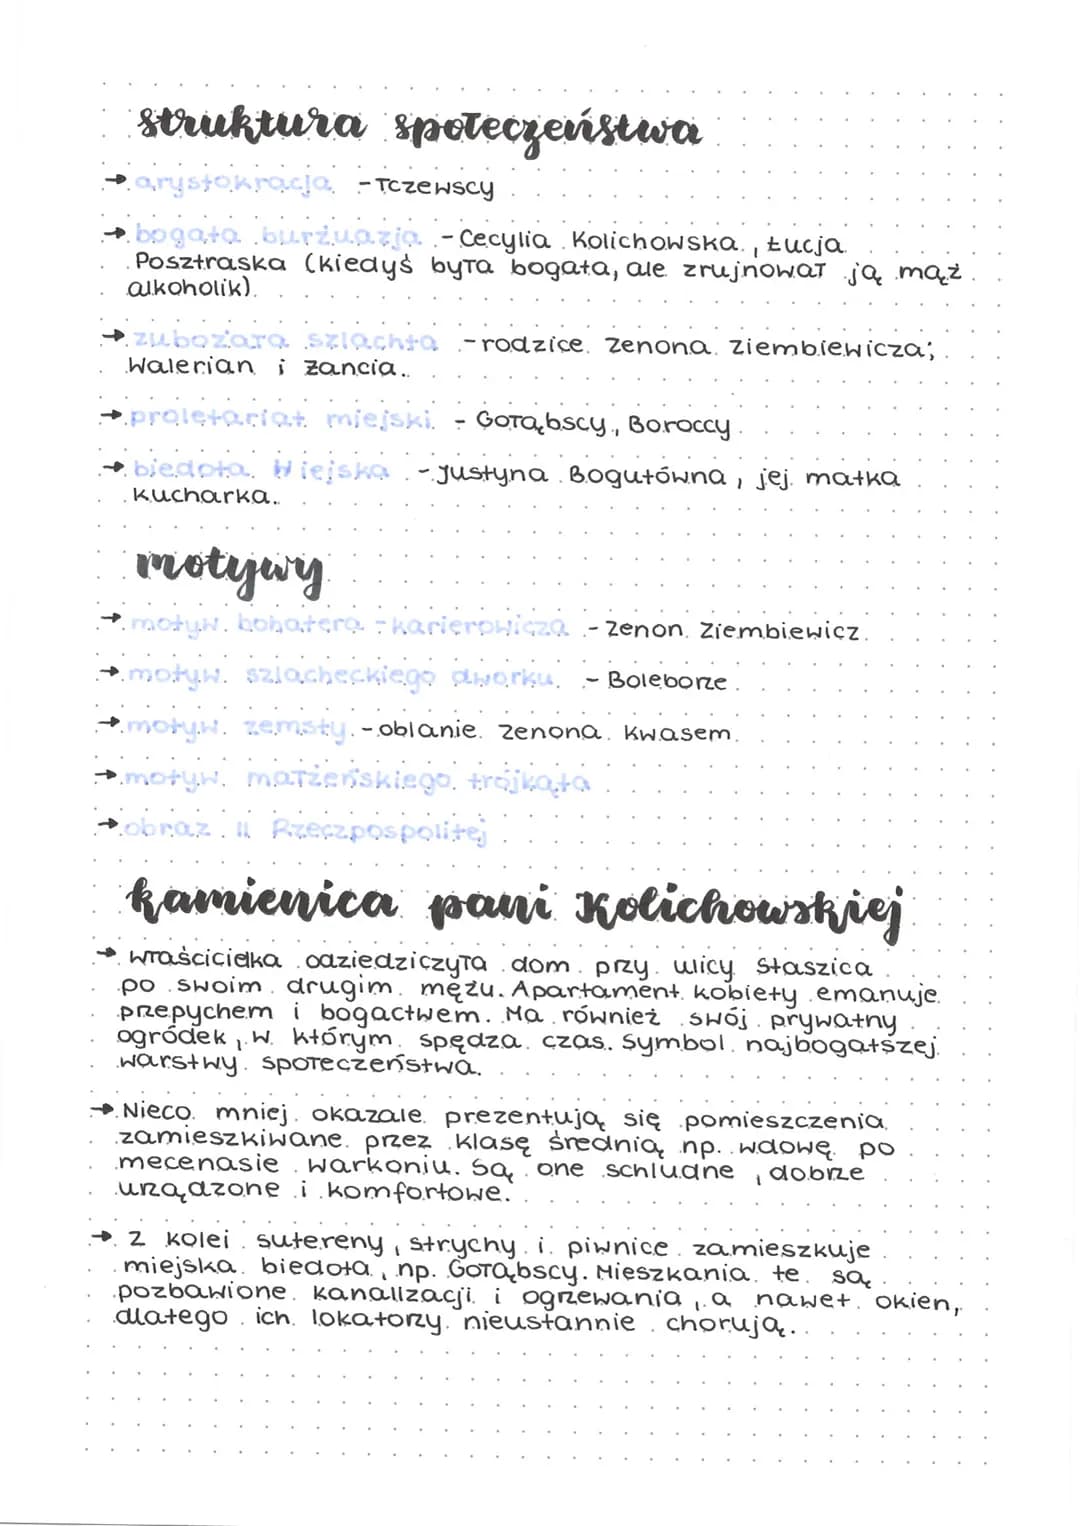 struktura społeczeństwa
→ arystokracja - Tczewscy
→ bogata burżuazja - Cecylia Kolichowska, Łucja
Posztraska (kiedyś była bogata, ale zrujnował ją mąż
alkoholik).
→ zubożała szlachta - rodzice Zenona Ziembiewicza;
Walerian i Żancia.
→ proletariat miejski - Gołąbscy, Boroccy
→ biedota Wiejska - Justyna Bogutówna, jej matka
kucharka.
motywy
→ motyw bohatera - karierowicza - Zenon Ziembiewicz
→ motyw szlacheckiego dworku - Boleborze
→ motyw zemsty - oblanie Zenona kwasem
→ motyw małżeńskiego trójkąta
→ obraz II Rzeczpospolitej
kamienica pani Kolichowskiej
→ właścicielka odziedziczyła dom przy ulicy Staszica
po swoim drugim mężu. Apartament kobiety emanuje
przepychem i bogactwem. Ma również swój prywatny
ogródek, w którym spędza czas. Symbol najbogatszej
warstwy społeczeństwa.
→ Nieco mniej okazale prezentują się pomieszczenia
zamieszkiwane przez klasę średnią np. wdowę po
mecenasie Warkoniu. Są one schludne, dobrze
urządzone i komfortowe.
→ Z kolei sutereny, strychy i piwnice zamieszkuje
miejska biedota, np. Gołąbscy. Mieszkania te są
pozbawione kanalizacji i ogrzewania, a nawet okien,
dlatego ich lokatorzy nieustannie chorują.